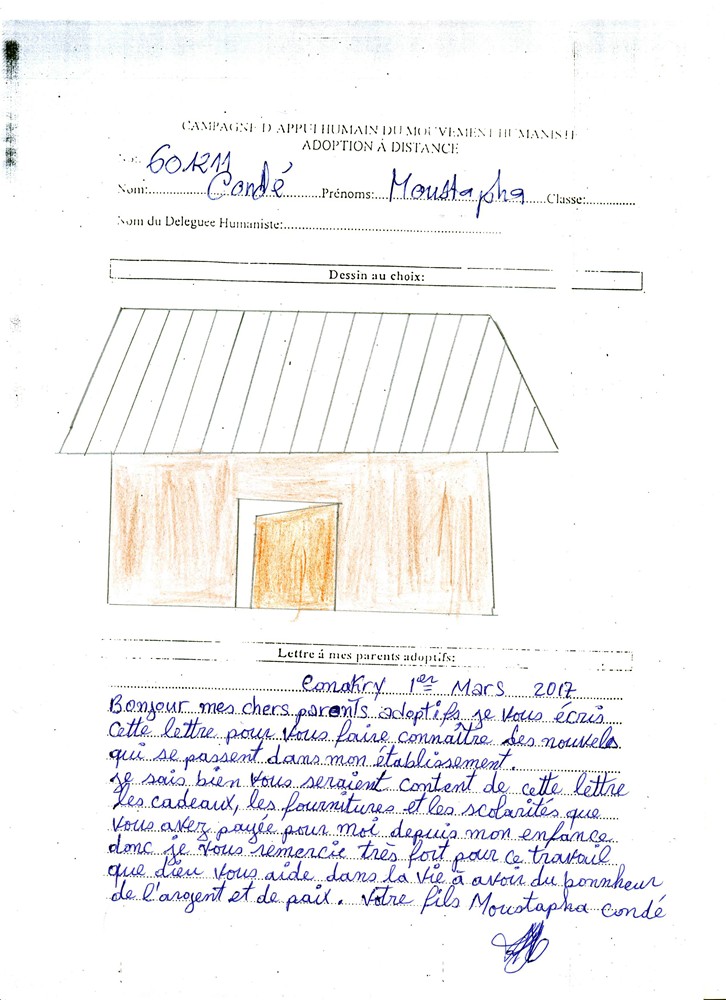 CAMPAGNE D'APPUI HUMAIN DU MOUVEMENT HUMANISTE
ADOPTION À DISTANCE
N.o: 601211
Nom: Condé Prénoms: Moustapha Classe:
Nom du Deleguee Humaniste:
Dessin au choix:
Lettre á mes parents adoptifs:
Conakry 1er Mars 2017
Bonjour mes chers parents adoptifs je vous écris
Cette lettre pour vous faire connaître des nouvels
qui se passent dans mon établissement.
je sais bien vous seraient content de cette lettre
les cadeaux, les fournitures et les scolarités que
vous avez payée pour moi depuis mon enfance
donc je vous remercie très fort pour ce travail
que dieu vous aide dans la vie à avoir du bonnheur
de l'argent et de paix. Votre fils Moustapha Condé